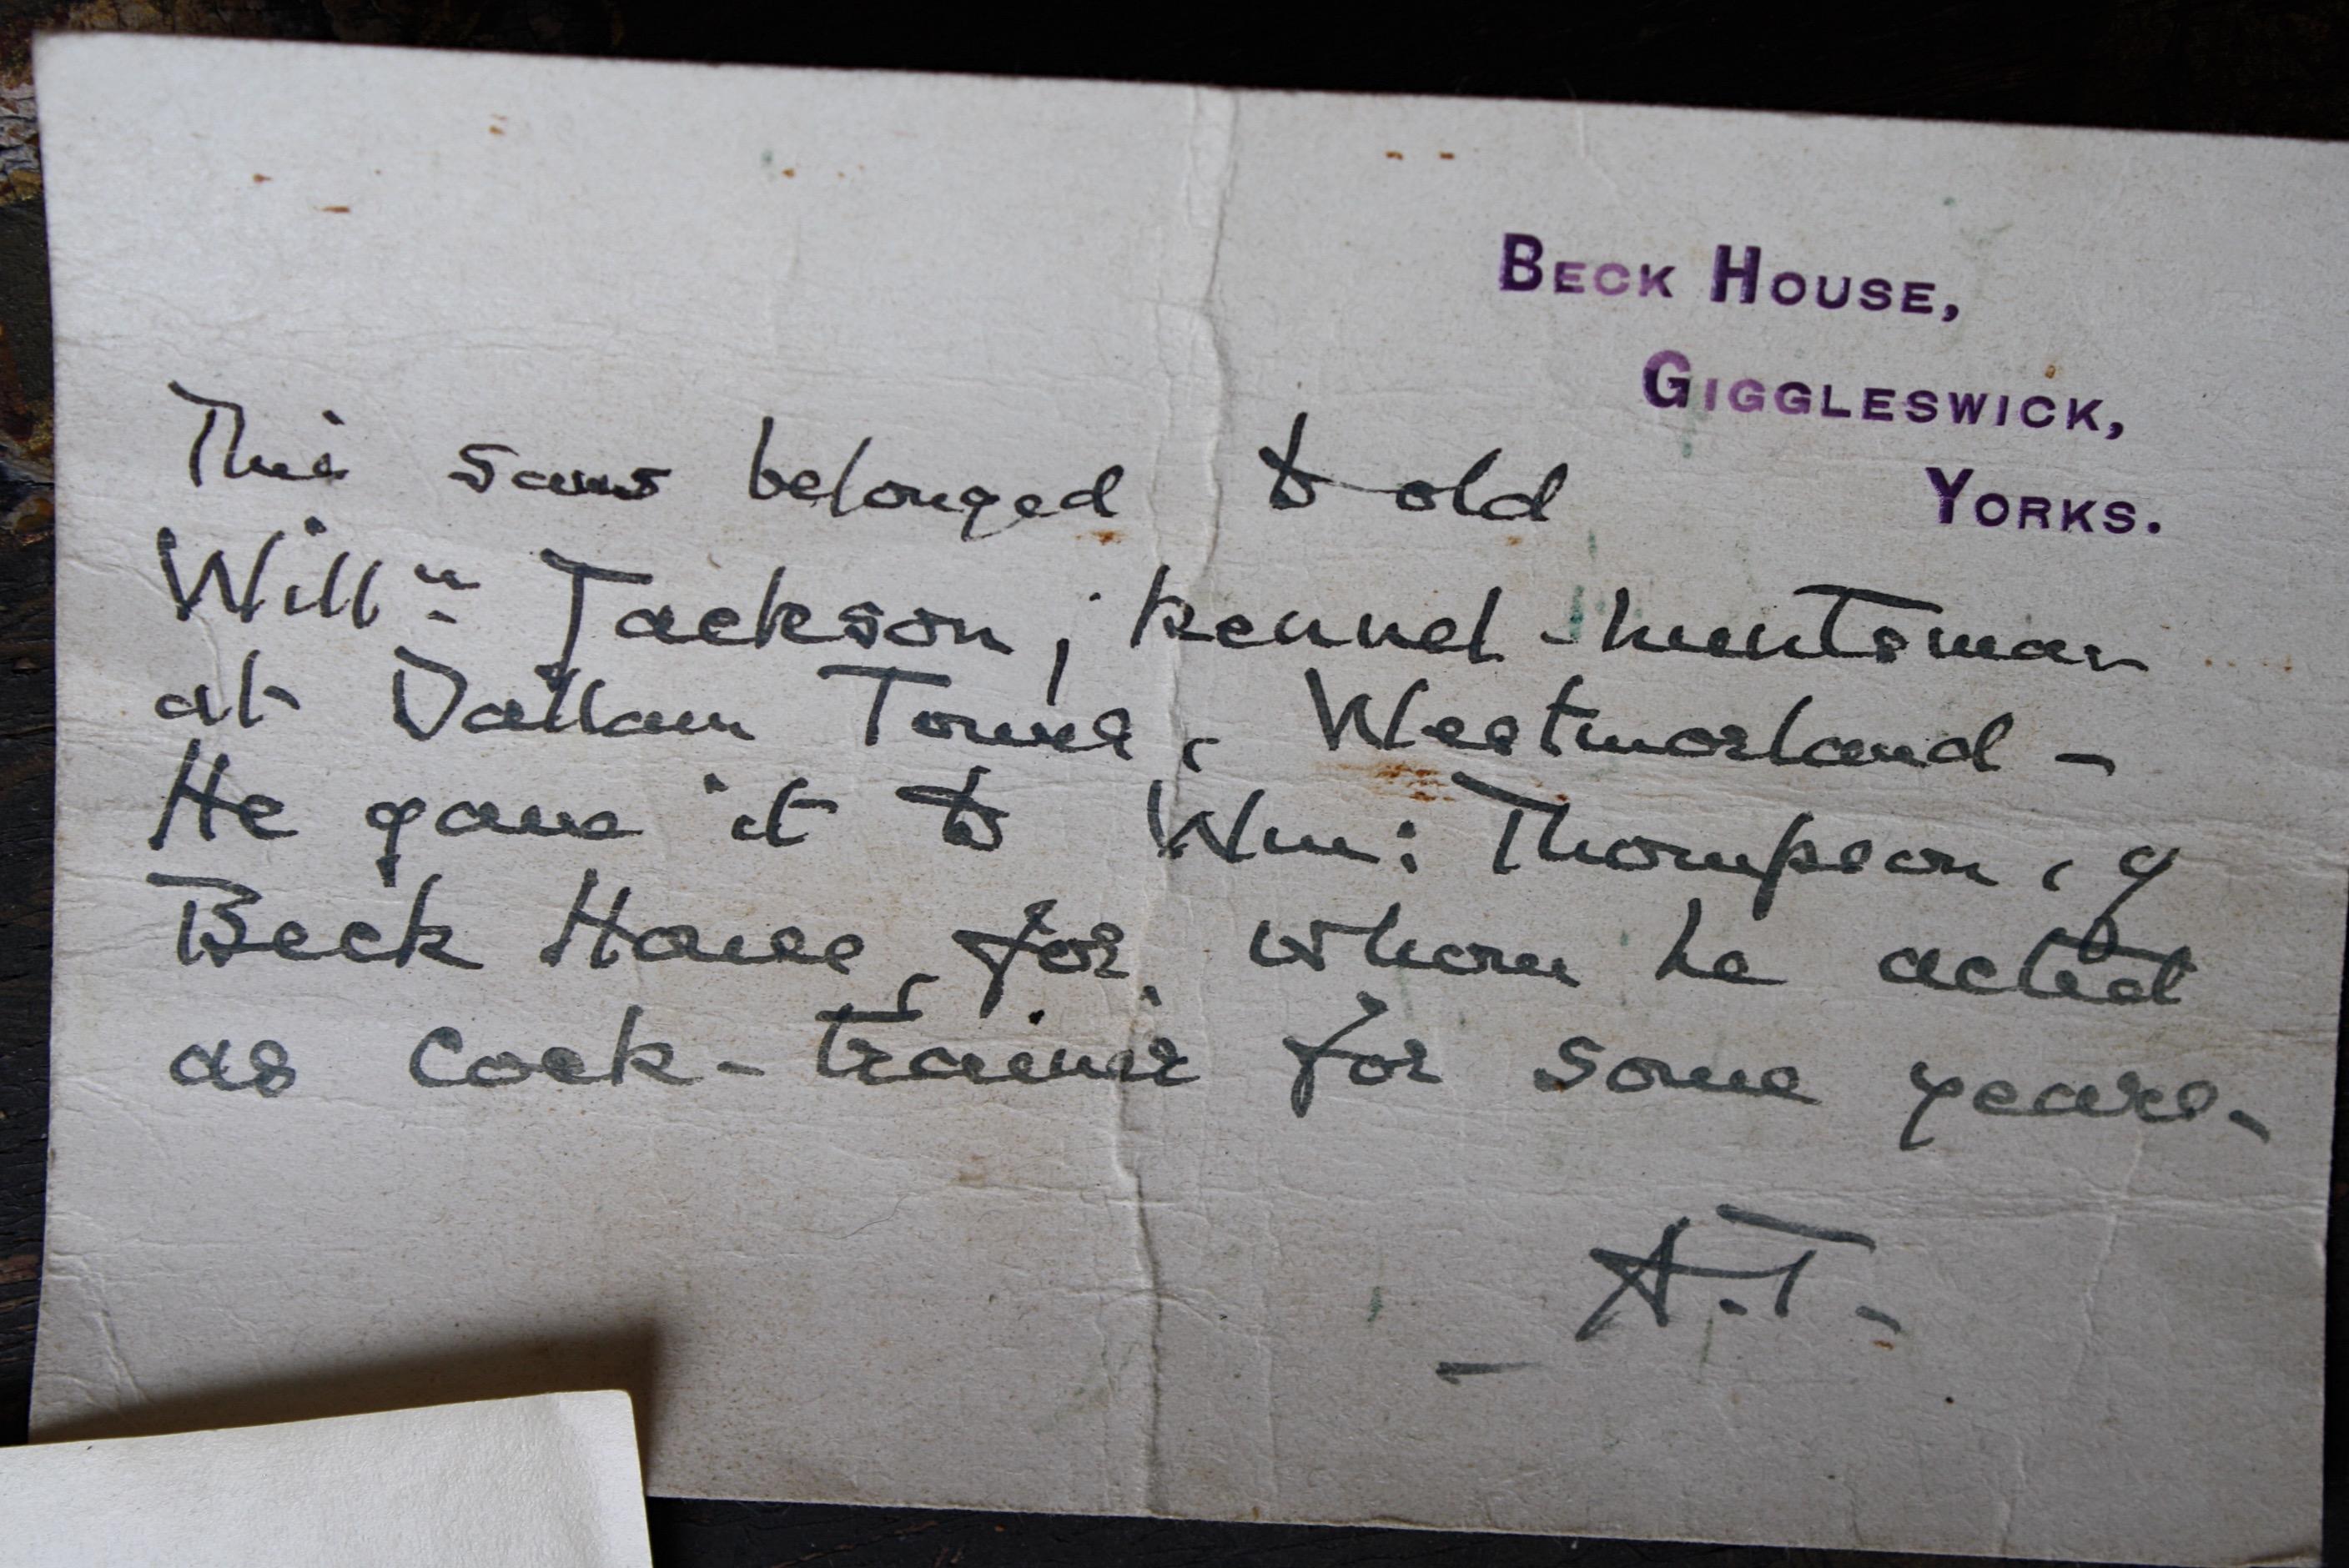 BECK HOUSE,
GIGGLESWICK,
YORKS.
This saws belonged to old
Willm Jackson, kennel-huntsman
at Dallam Tower, Westmorland -
He gave it to Wm: Thompson, of
Beck House, for whom he acted
as cock-trainer for some years -
A.T.